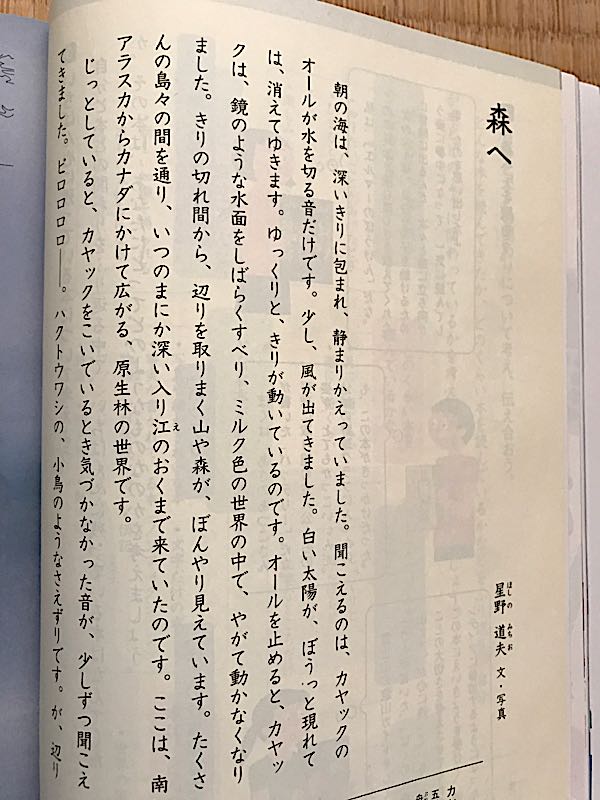 森へ
星野 道夫 文・写真
ほしの みちお
朝の海は、深いきりに包まれ、静まりかえっていました。聞こえるのは、カヤックの
オールが水を切る音だけです。少し、風が出てきました。白い太陽が、ぼうっと現れて
は、消えてゆきます。ゆっくりと、きりが動いているのです。オールを止めると、カヤッ
クは、鏡のような水面をしばらくすべり、ミルク色の世界の中で、やがて動かなくなり
ました。きりの切れ間から、辺りを取りまく山や森が、ぼんやり見えています。たくさ
んの島々の間を通り、いつのまにか深い入り江のおくまで来ていたのです。ここは、南
え
アラスカからカナダにかけて広がる、原生林の世界です。
じっとしていると、カヤックをこいでいるとき気づかなかった音が、少しずつ聞こえ
てきました。ピロロロロ――。ハクトウワシの、小鳥のようなさえずりです。が、辺り